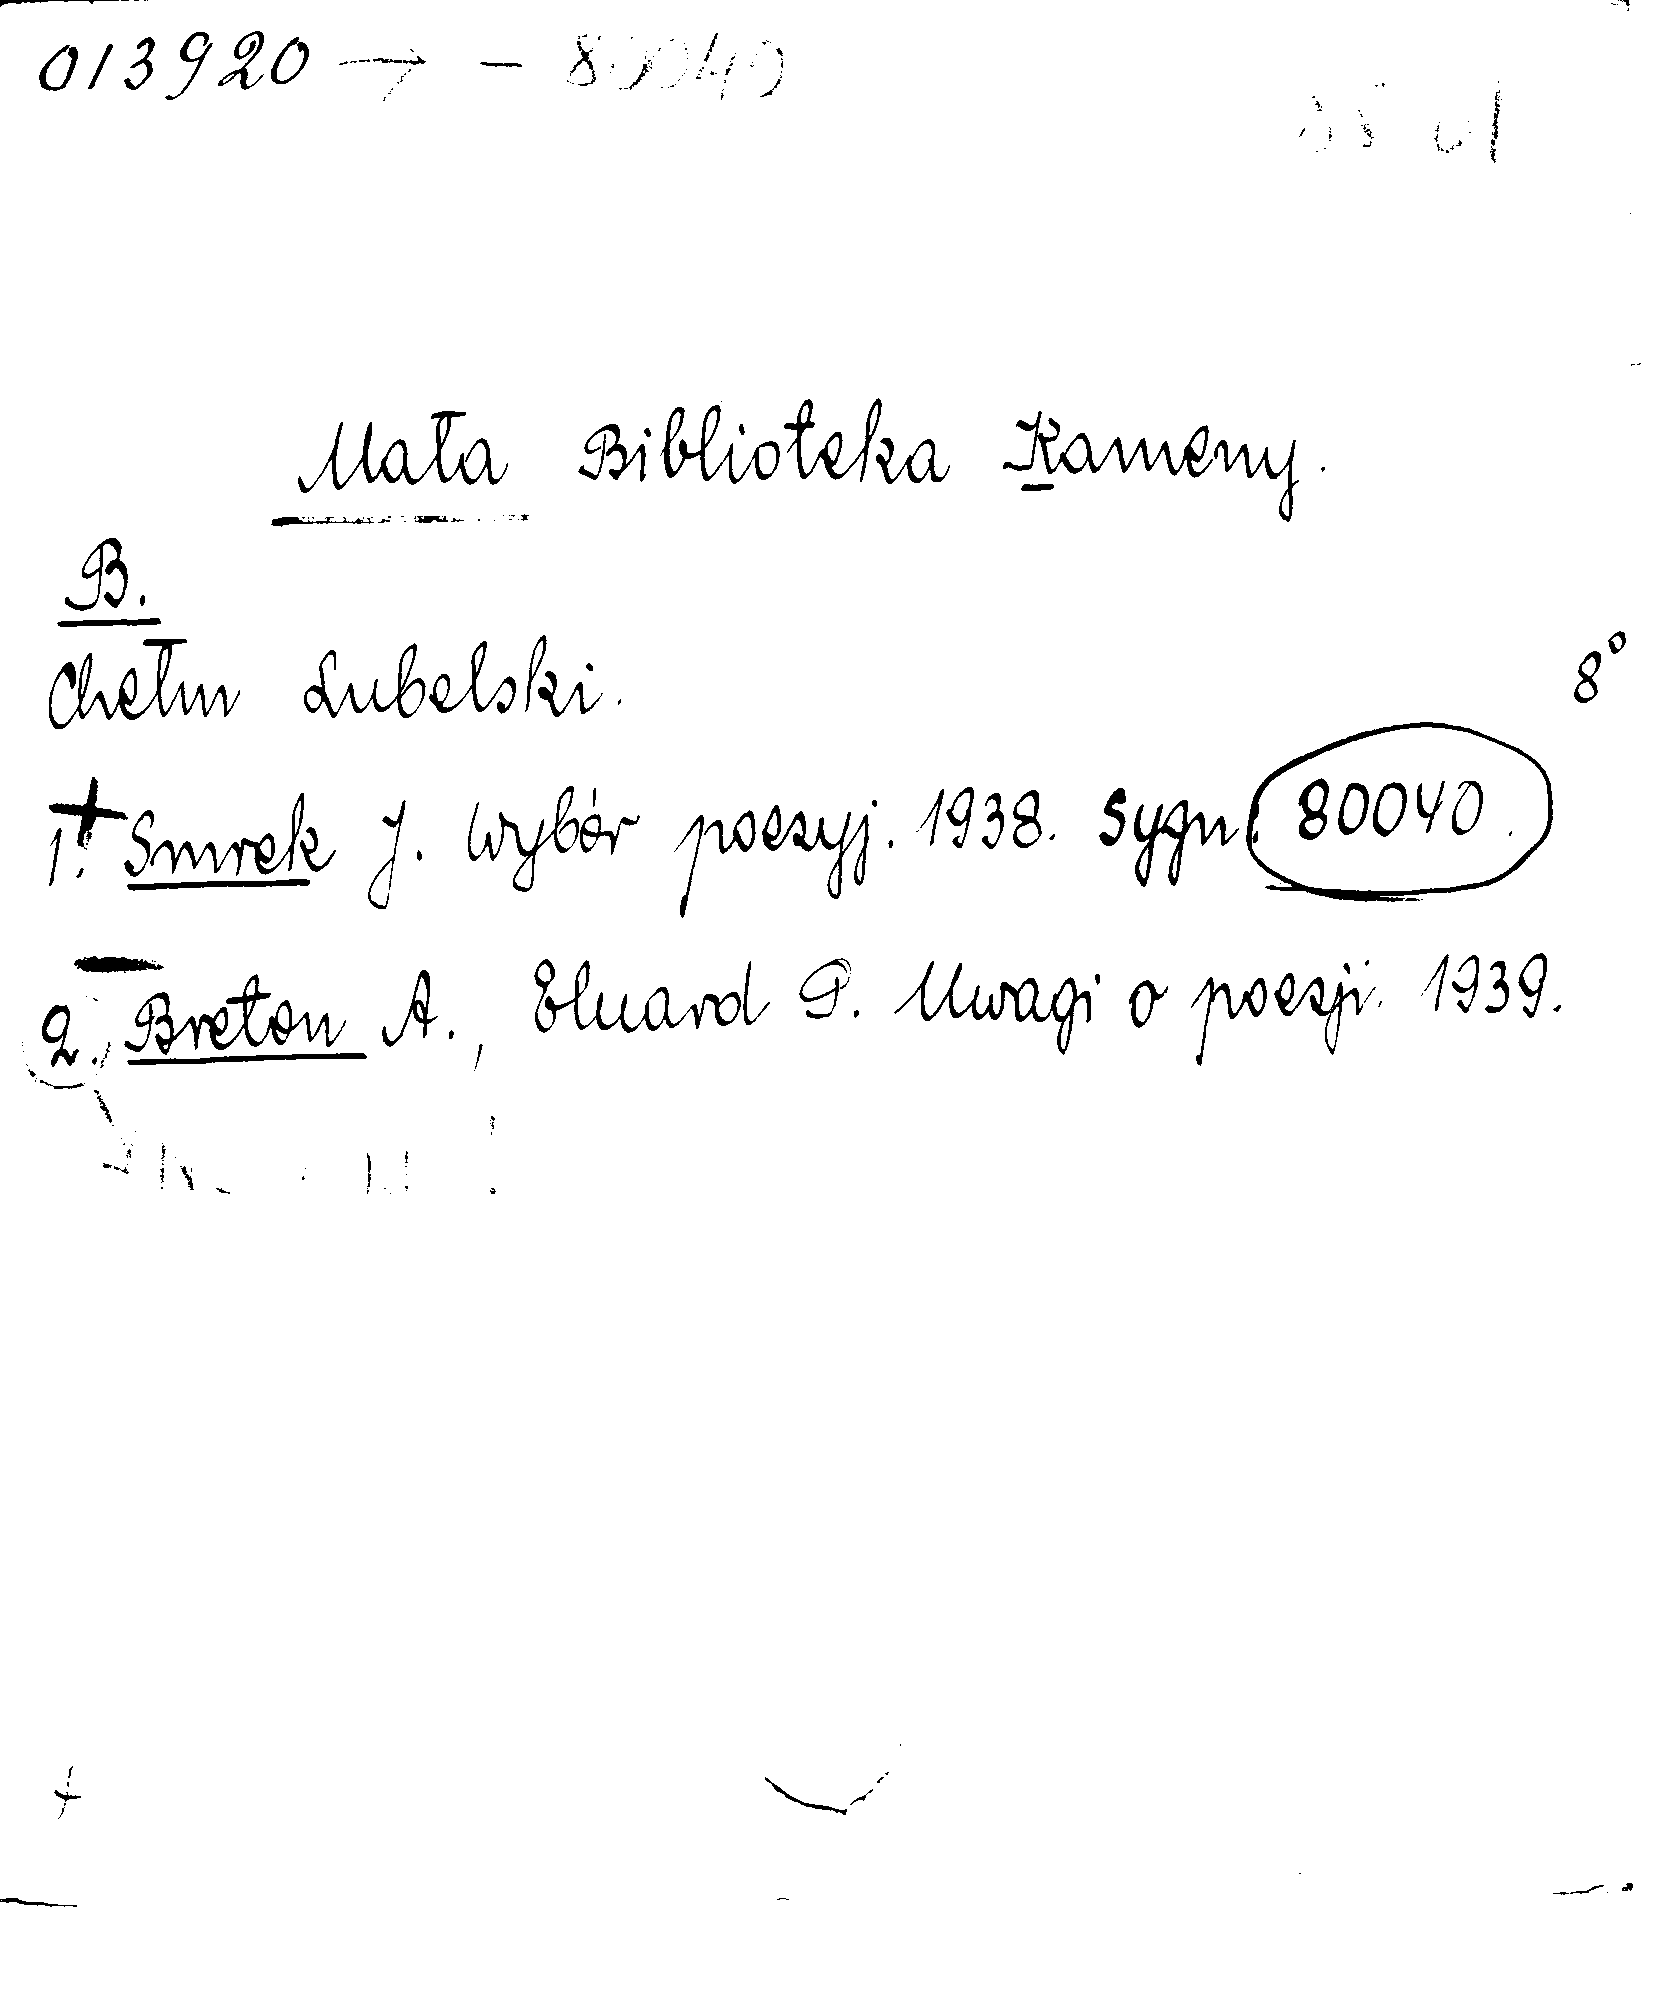 013920 → - 80040
Mała Biblioteka Kameny.
B.
Chełm Lubelski.
8°
1. Smrek J. Wybór poezyj. 1938. Sygn. 80040.
2. Breton A., Eluard P. Uwagi o poezji. 1939.